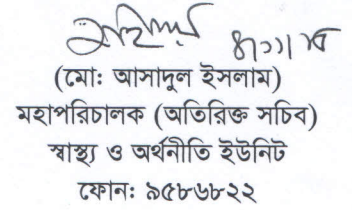 (মোঃ আসাদুল ইসলাম)
মহাপরিচালক (অতিরিক্ত সচিব)
স্বাস্থ্য ও অর্থনীতি ইউনিট
ফোনঃ ৯৫৮৬৮২২